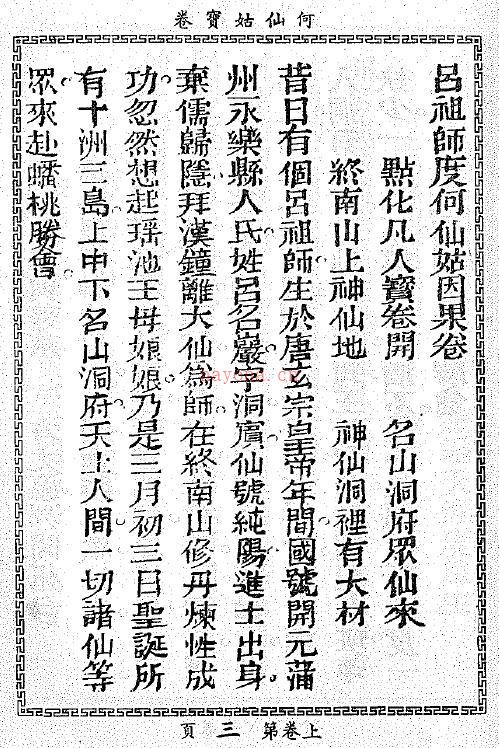 何仙姑寶卷
呂祖師度何仙姑因果卷
點化凡人寶卷開 名山洞府眾仙來
終南山上神仙地 神仙洞裡有大材
昔日有個呂祖師。生於唐玄宗皇帝年間國號開元蒲
州永樂縣人氏姓呂名巖字洞賓仙號純陽進士出身。
棄儒歸隱。拜漢鐘離大仙為師。在終南山修丹煉性成
功忽然想起瑤池王母娘娘。乃是三月初三日聖誕所
有十洲三島上中下名山洞府天上人間一切諸仙等
眾來赴蟠桃勝會。
上卷第三頁